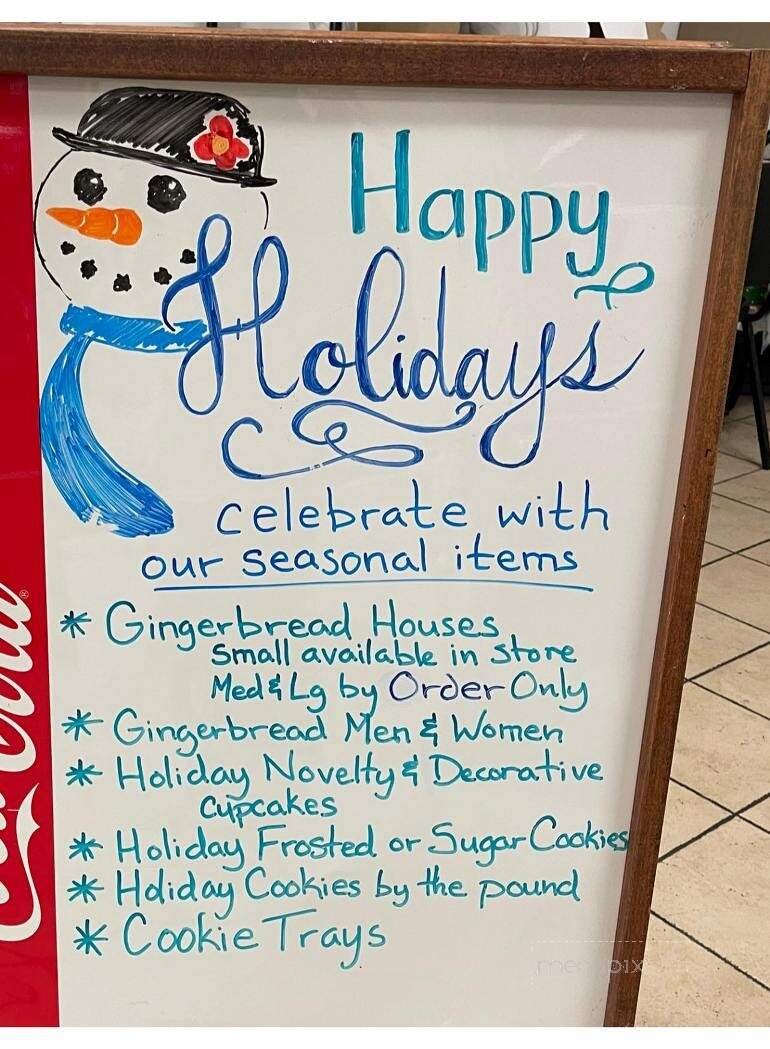 Happy
Holidays
celebrate with
our seasonal items
* Gingerbread Houses
Small available in store
Med & Lg by Order Only
* Gingerbread Men & Women
* Holiday Novelty & Decorative
Cupcakes
* Holiday Frosted or Sugar Cookies
* Holiday Cookies by the pound
* Cookie Trays
Coca-Cola®